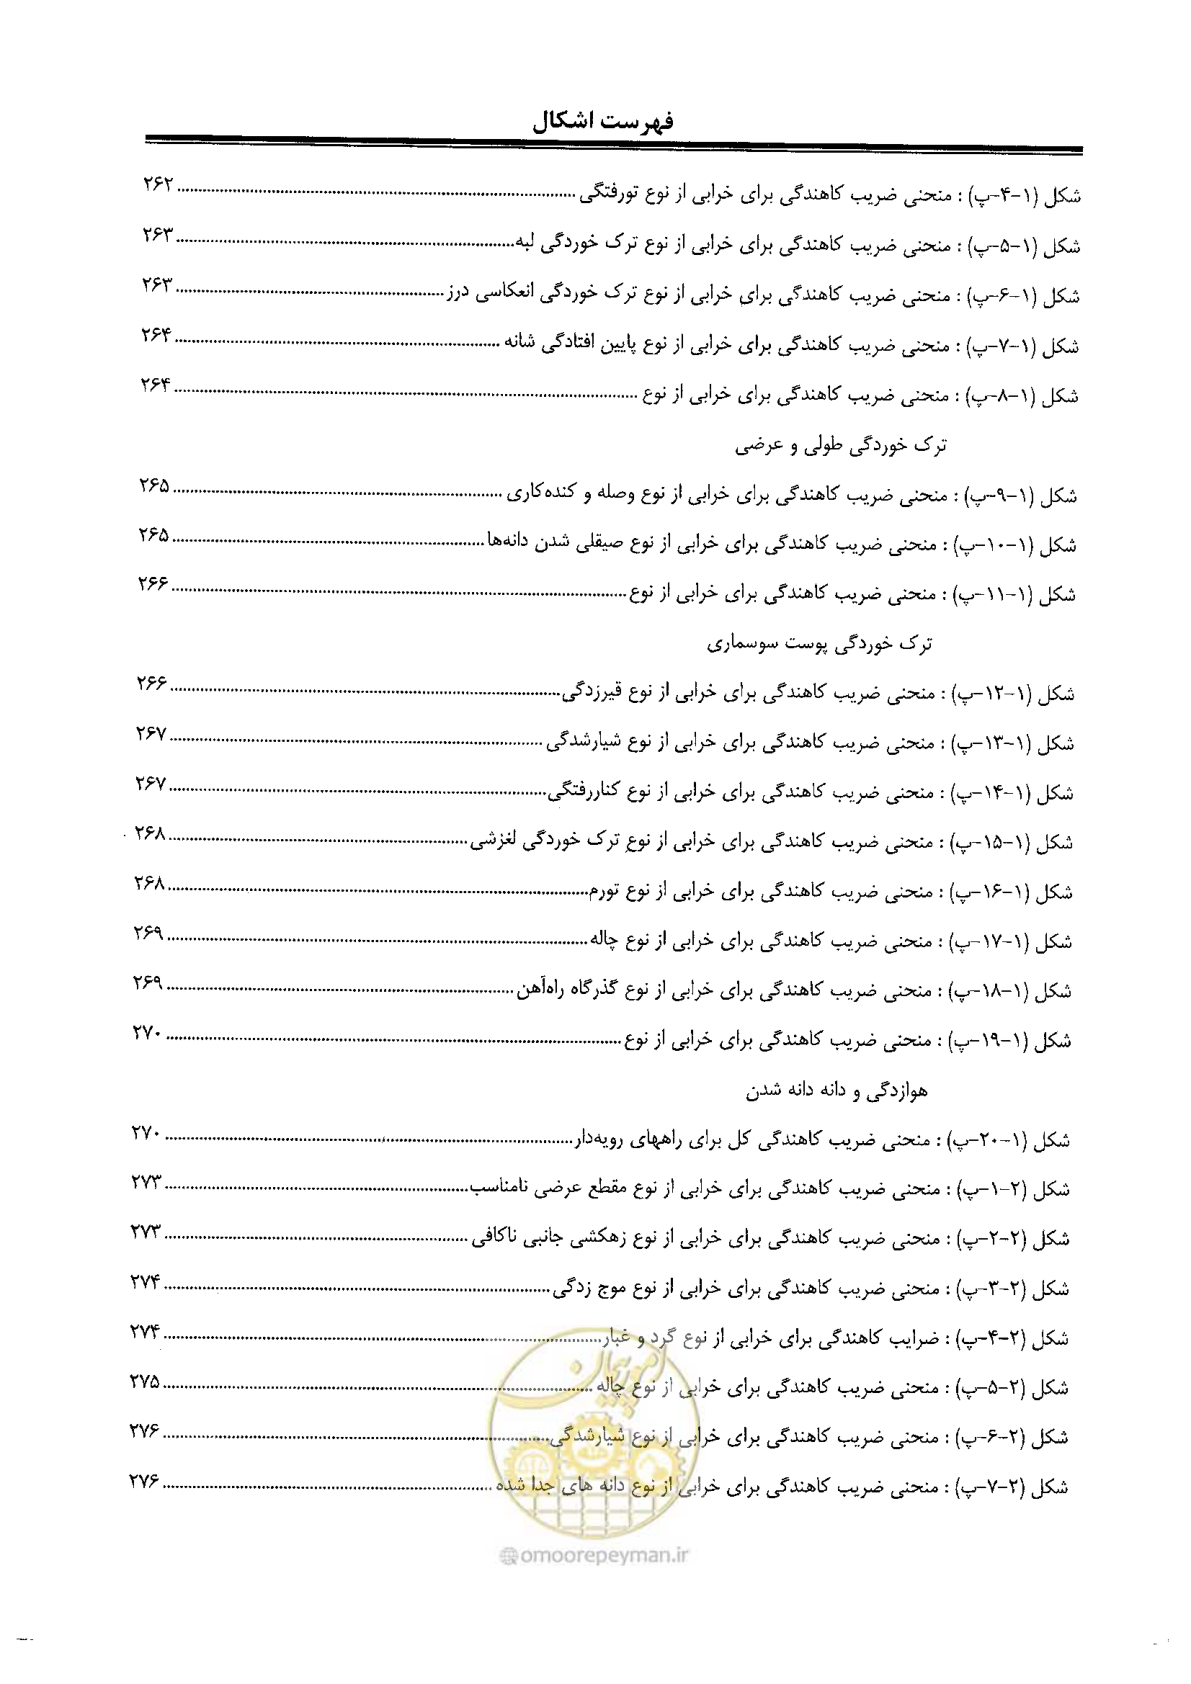 فهرست اشکال
شکل (۱-۴-پ) : منحنی ضریب کاهندگی برای خرابی از نوع تورفتگی ........ ۲۶۲
شکل (۱-۵-پ) : منحنی ضریب کاهندگی برای خرابی از نوع ترک خوردگی لبه ........ ۲۶۳
شکل (۱-۶-پ) : منحنی ضریب کاهندگی برای خرابی از نوع ترک خوردگی انعکاسی درز ........ ۲۶۳
شکل (۱-۷-پ) : منحنی ضریب کاهندگی برای خرابی از نوع پایین افتادگی شانه ........ ۲۶۴
شکل (۱-۸-پ) : منحنی ضریب کاهندگی برای خرابی از نوع ........ ۲۶۴
ترک خوردگی طولی و عرضی
شکل (۱-۹-پ) : منحنی ضریب کاهندگی برای خرابی از نوع وصله و کنده‌کاری ........ ۲۶۵
شکل (۱-۱۰-پ) : منحنی ضریب کاهندگی برای خرابی از نوع صیقلی شدن دانه‌ها ........ ۲۶۵
شکل (۱-۱۱-پ) : منحنی ضریب کاهندگی برای خرابی از نوع ........ ۲۶۶
ترک خوردگی پوست سوسماری
شکل (۱-۱۲-پ) : منحنی ضریب کاهندگی برای خرابی از نوع قیرزدگی ........ ۲۶۶
شکل (۱-۱۳-پ) : منحنی ضریب کاهندگی برای خرابی از نوع شیارشدگی ........ ۲۶۷
شکل (۱-۱۴-پ) : منحنی ضریب کاهندگی برای خرابی از نوع کناررفتگی ........ ۲۶۷
شکل (۱-۱۵-پ) : منحنی ضریب کاهندگی برای خرابی از نوع ترک خوردگی لغزشی ........ ۲۶۸
شکل (۱-۱۶-پ) : منحنی ضریب کاهندگی برای خرابی از نوع تورم ........ ۲۶۸
شکل (۱-۱۷-پ) : منحنی ضریب کاهندگی برای خرابی از نوع چاله ........ ۲۶۹
شکل (۱-۱۸-پ) : منحنی ضریب کاهندگی برای خرابی از نوع گذرگاه راه‌آهن ........ ۲۶۹
شکل (۱-۱۹-پ) : منحنی ضریب کاهندگی برای خرابی از نوع ........ ۲۷۰
هوازدگی و دانه دانه شدن
شکل (۱-۲۰-پ) : منحنی ضریب کاهندگی کل برای راههای رویه‌دار ........ ۲۷۰
شکل (۲-۱-پ) : منحنی ضریب کاهندگی برای خرابی از نوع مقطع عرضی نامناسب ........ ۲۷۳
شکل (۲-۲-پ) : منحنی ضریب کاهندگی برای خرابی از نوع زهکشی جانبی ناکافی ........ ۲۷۳
شکل (۲-۳-پ) : منحنی ضریب کاهندگی برای خرابی از نوع موج زدگی ........ ۲۷۴
شکل (۲-۴-پ) : ضرایب کاهندگی برای خرابی از نوع گرد و غبار ........ ۲۷۴
شکل (۲-۵-پ) : منحنی ضریب کاهندگی برای خرابی از نوع چاله ........ ۲۷۵
شکل (۲-۶-پ) : منحنی ضریب کاهندگی برای خرابی از نوع شیارشدگی ........ ۲۷۶
شکل (۲-۷-پ) : منحنی ضریب کاهندگی برای خرابی از نوع دانه های جدا شده ........ ۲۷۶
امور پیمان
omoorepeyman.ir